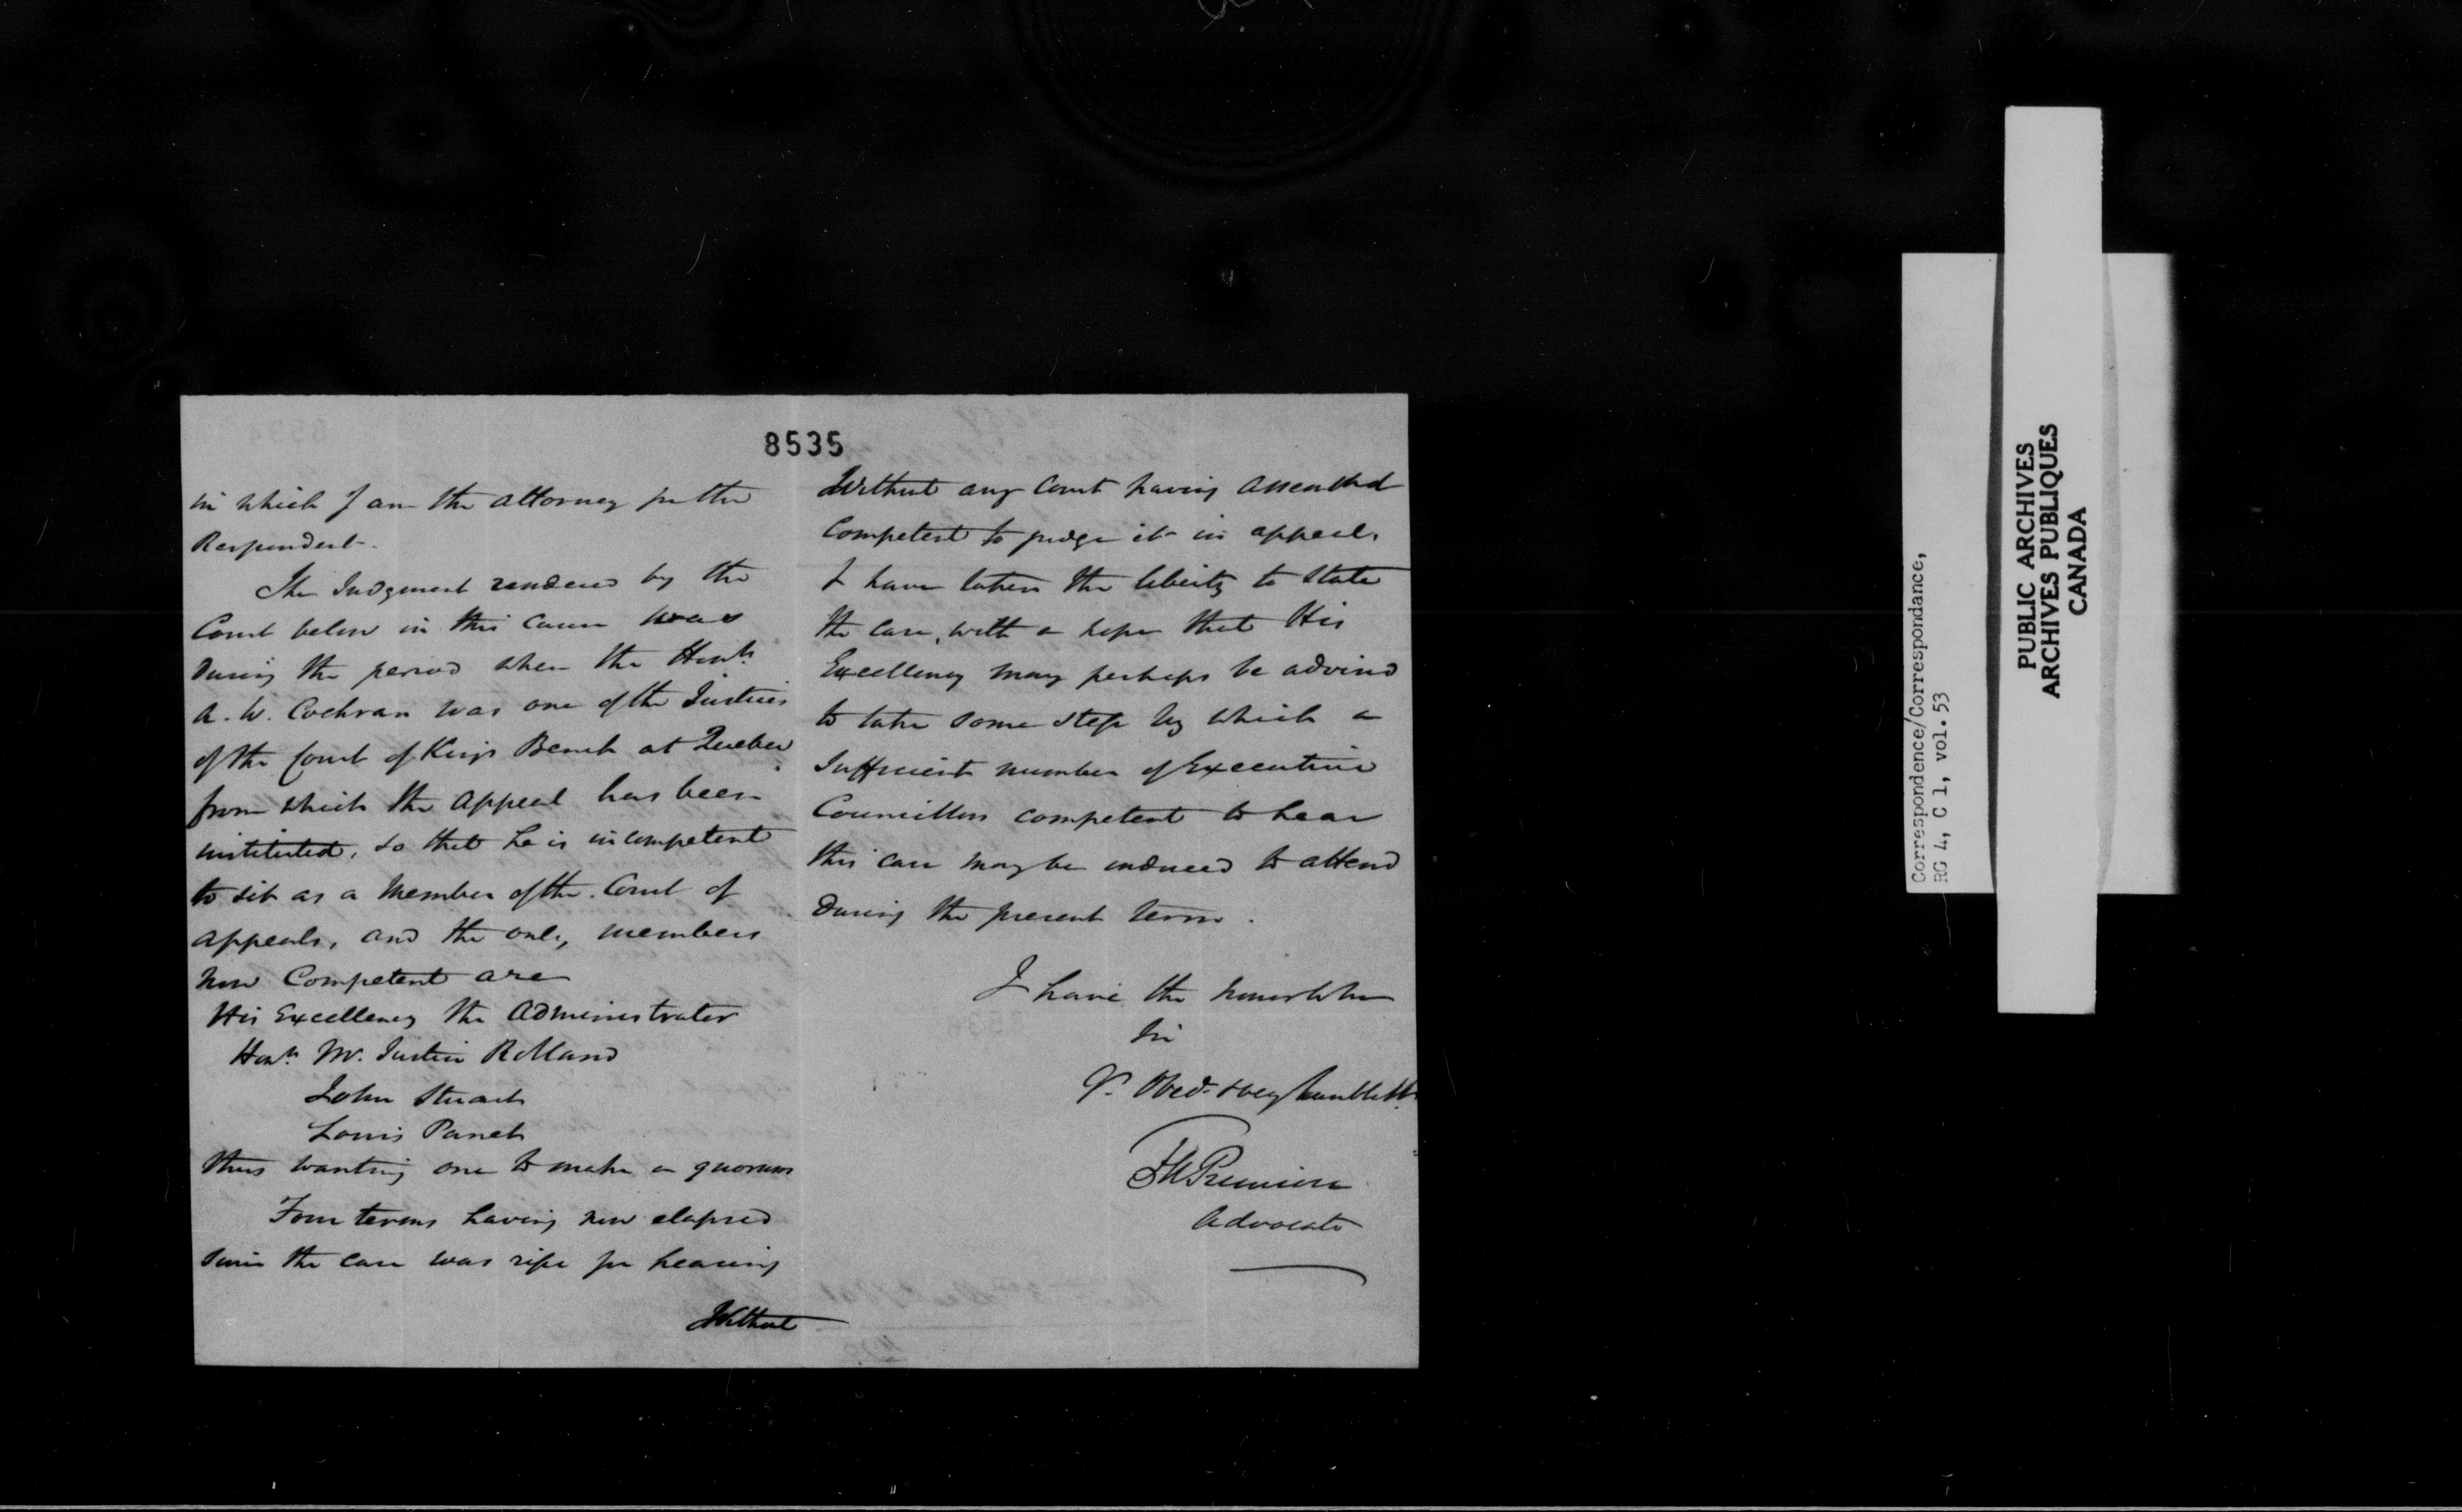 8535
in which I am the attorney for the
Respondent.
The Judgment rendered by the
Court below in this cause was
During the period when the Honble
A. W. Cochran was one of the Justices
of the Court of Kings Bench at Quebec
from which the appeal has been
instituted, so that he is incompetent
to sit as a Member of the Court of
appeals, and the only members
now Competent are
His Excellency the Administrator
Honble Mr. Justice Rolland
John Stuart
Louis Panet
thus wanting one to make a quorum
Four terms having now elapsed
since the case was ripe for hearing
Without
Without any Court having assembled
Competent to judge it in appeal,
I have taken the liberty to state
the case, with a hope that His
Excellency may perhaps be advised
to take some step by which a
Sufficient number of Executive
Councillors competent to hear
this case may be induced to attend
During the present term.
I have the honor to be
Sir
Yr. Obed. & very humble
Advocate
PUBLIC ARCHIVES
ARCHIVES PUBLIQUES
CANADA
Correspondence/Correspondance,
RG 4, C 1, vol.53